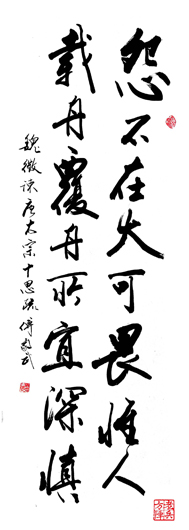 怨不在大可畏惟人
载舟覆舟所宜深慎
魏徵谏唐太宗十思疏